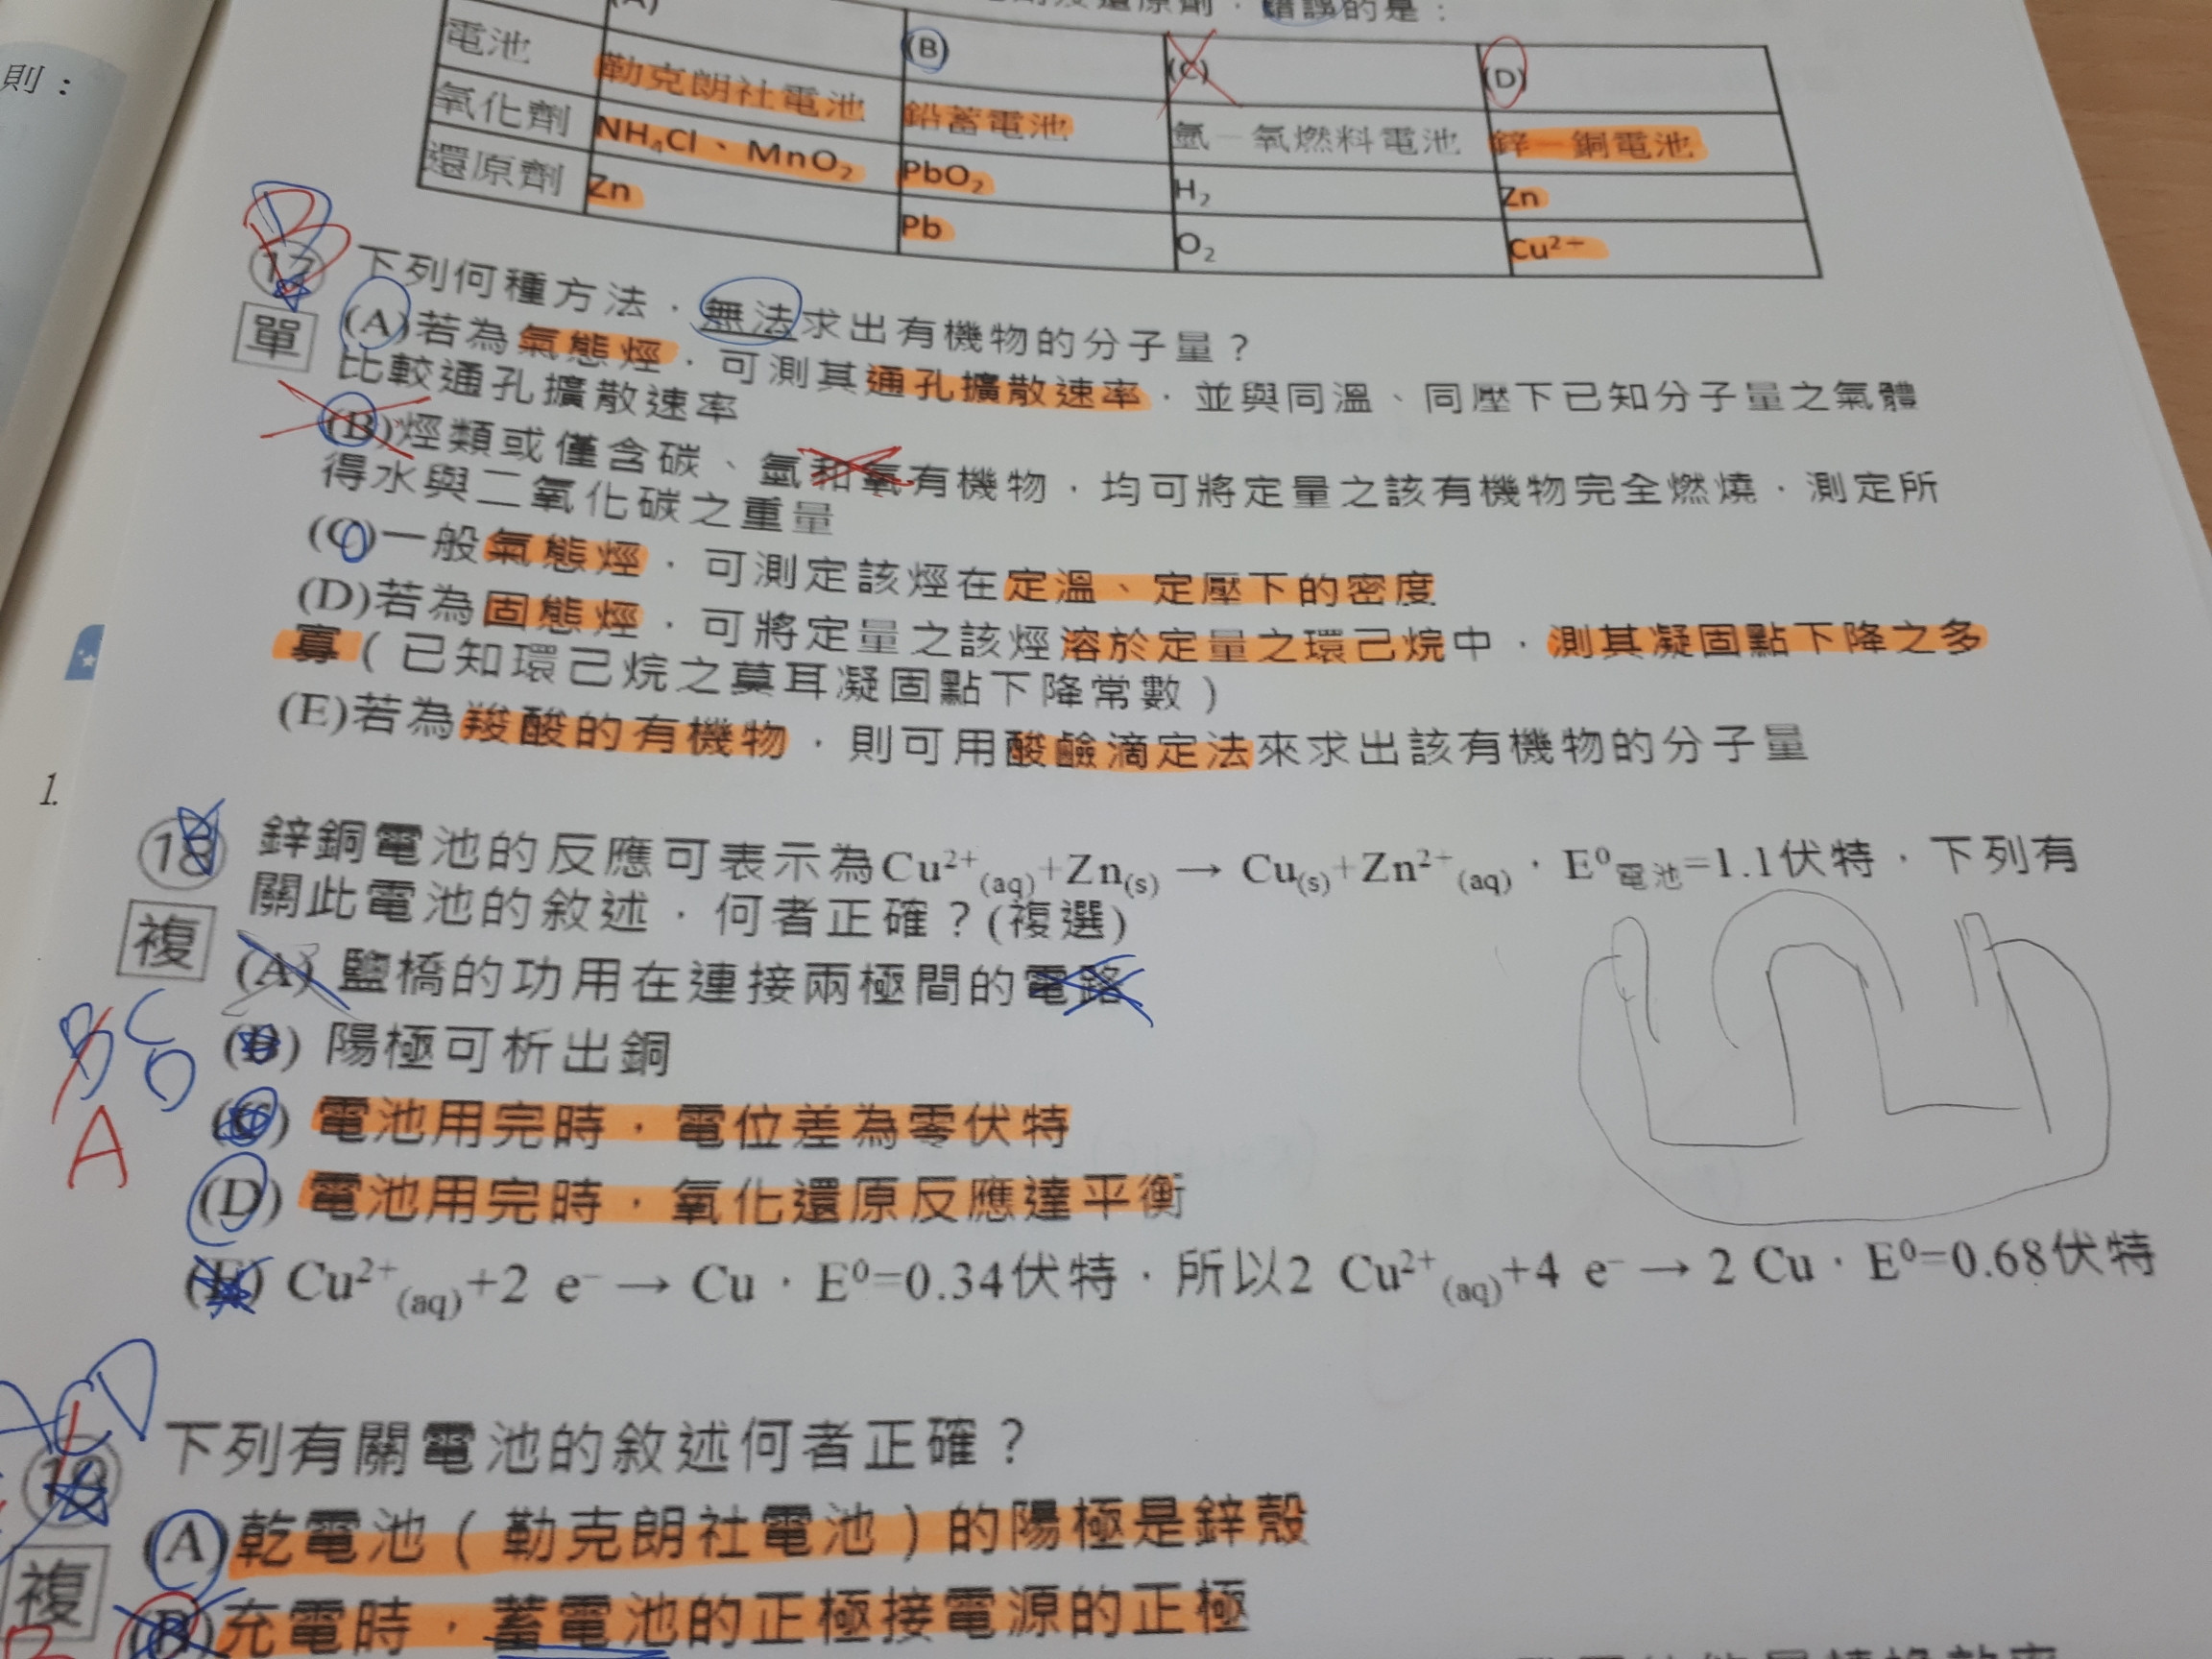 還原劑，錯誤的是：
則：
(A) (B) (C) (D)
電池 勒克朗社電池 鉛蓄電池 氫－氧燃料電池 鋅－銅電池
氧化劑 NH₄Cl、MnO₂ PbO₂ H₂ Zn
還原劑 Zn Pb O₂ Cu²⁺
B
17 下列何種方法，無法求出有機物的分子量？
單
(A)若為氣態烴，可測其通孔擴散速率，並與同溫、同壓下已知分子量之氣體
比較通孔擴散速率
(B)烴類或僅含碳、氫和氧有機物，均可將定量之該有機物完全燃燒，測定所
得水與二氧化碳之重量
(C)一般氣態烴，可測定該烴在定溫、定壓下的密度
(D)若為固態烴，可將定量之該烴溶於定量之環己烷中，測其凝固點下降之多
寡（已知環己烷之莫耳凝固點下降常數）
(E)若為羧酸的有機物，則可用酸鹼滴定法來求出該有機物的分子量
1.
18 鋅銅電池的反應可表示為Cu²⁺(aq)+Zn(s) → Cu(s)+Zn²⁺(aq)，E⁰電池=1.1伏特，下列有
關此電池的敘述，何者正確？(複選)
複
(A) 鹽橋的功用在連接兩極間的電路
(B) 陽極可析出銅
BCD
A
(C) 電池用完時，電位差為零伏特
(D) 電池用完時，氧化還原反應達平衡
(E) Cu²⁺(aq)+2 e⁻ → Cu，E⁰=0.34伏特，所以2 Cu²⁺(aq)+4 e⁻ → 2 Cu，E⁰=0.68伏特
ACD
19 下列有關電池的敘述何者正確？
複
(A)乾電池（勒克朗社電池）的陽極是鋅殼
(B)充電時，蓄電池的正極接電源的正極
B